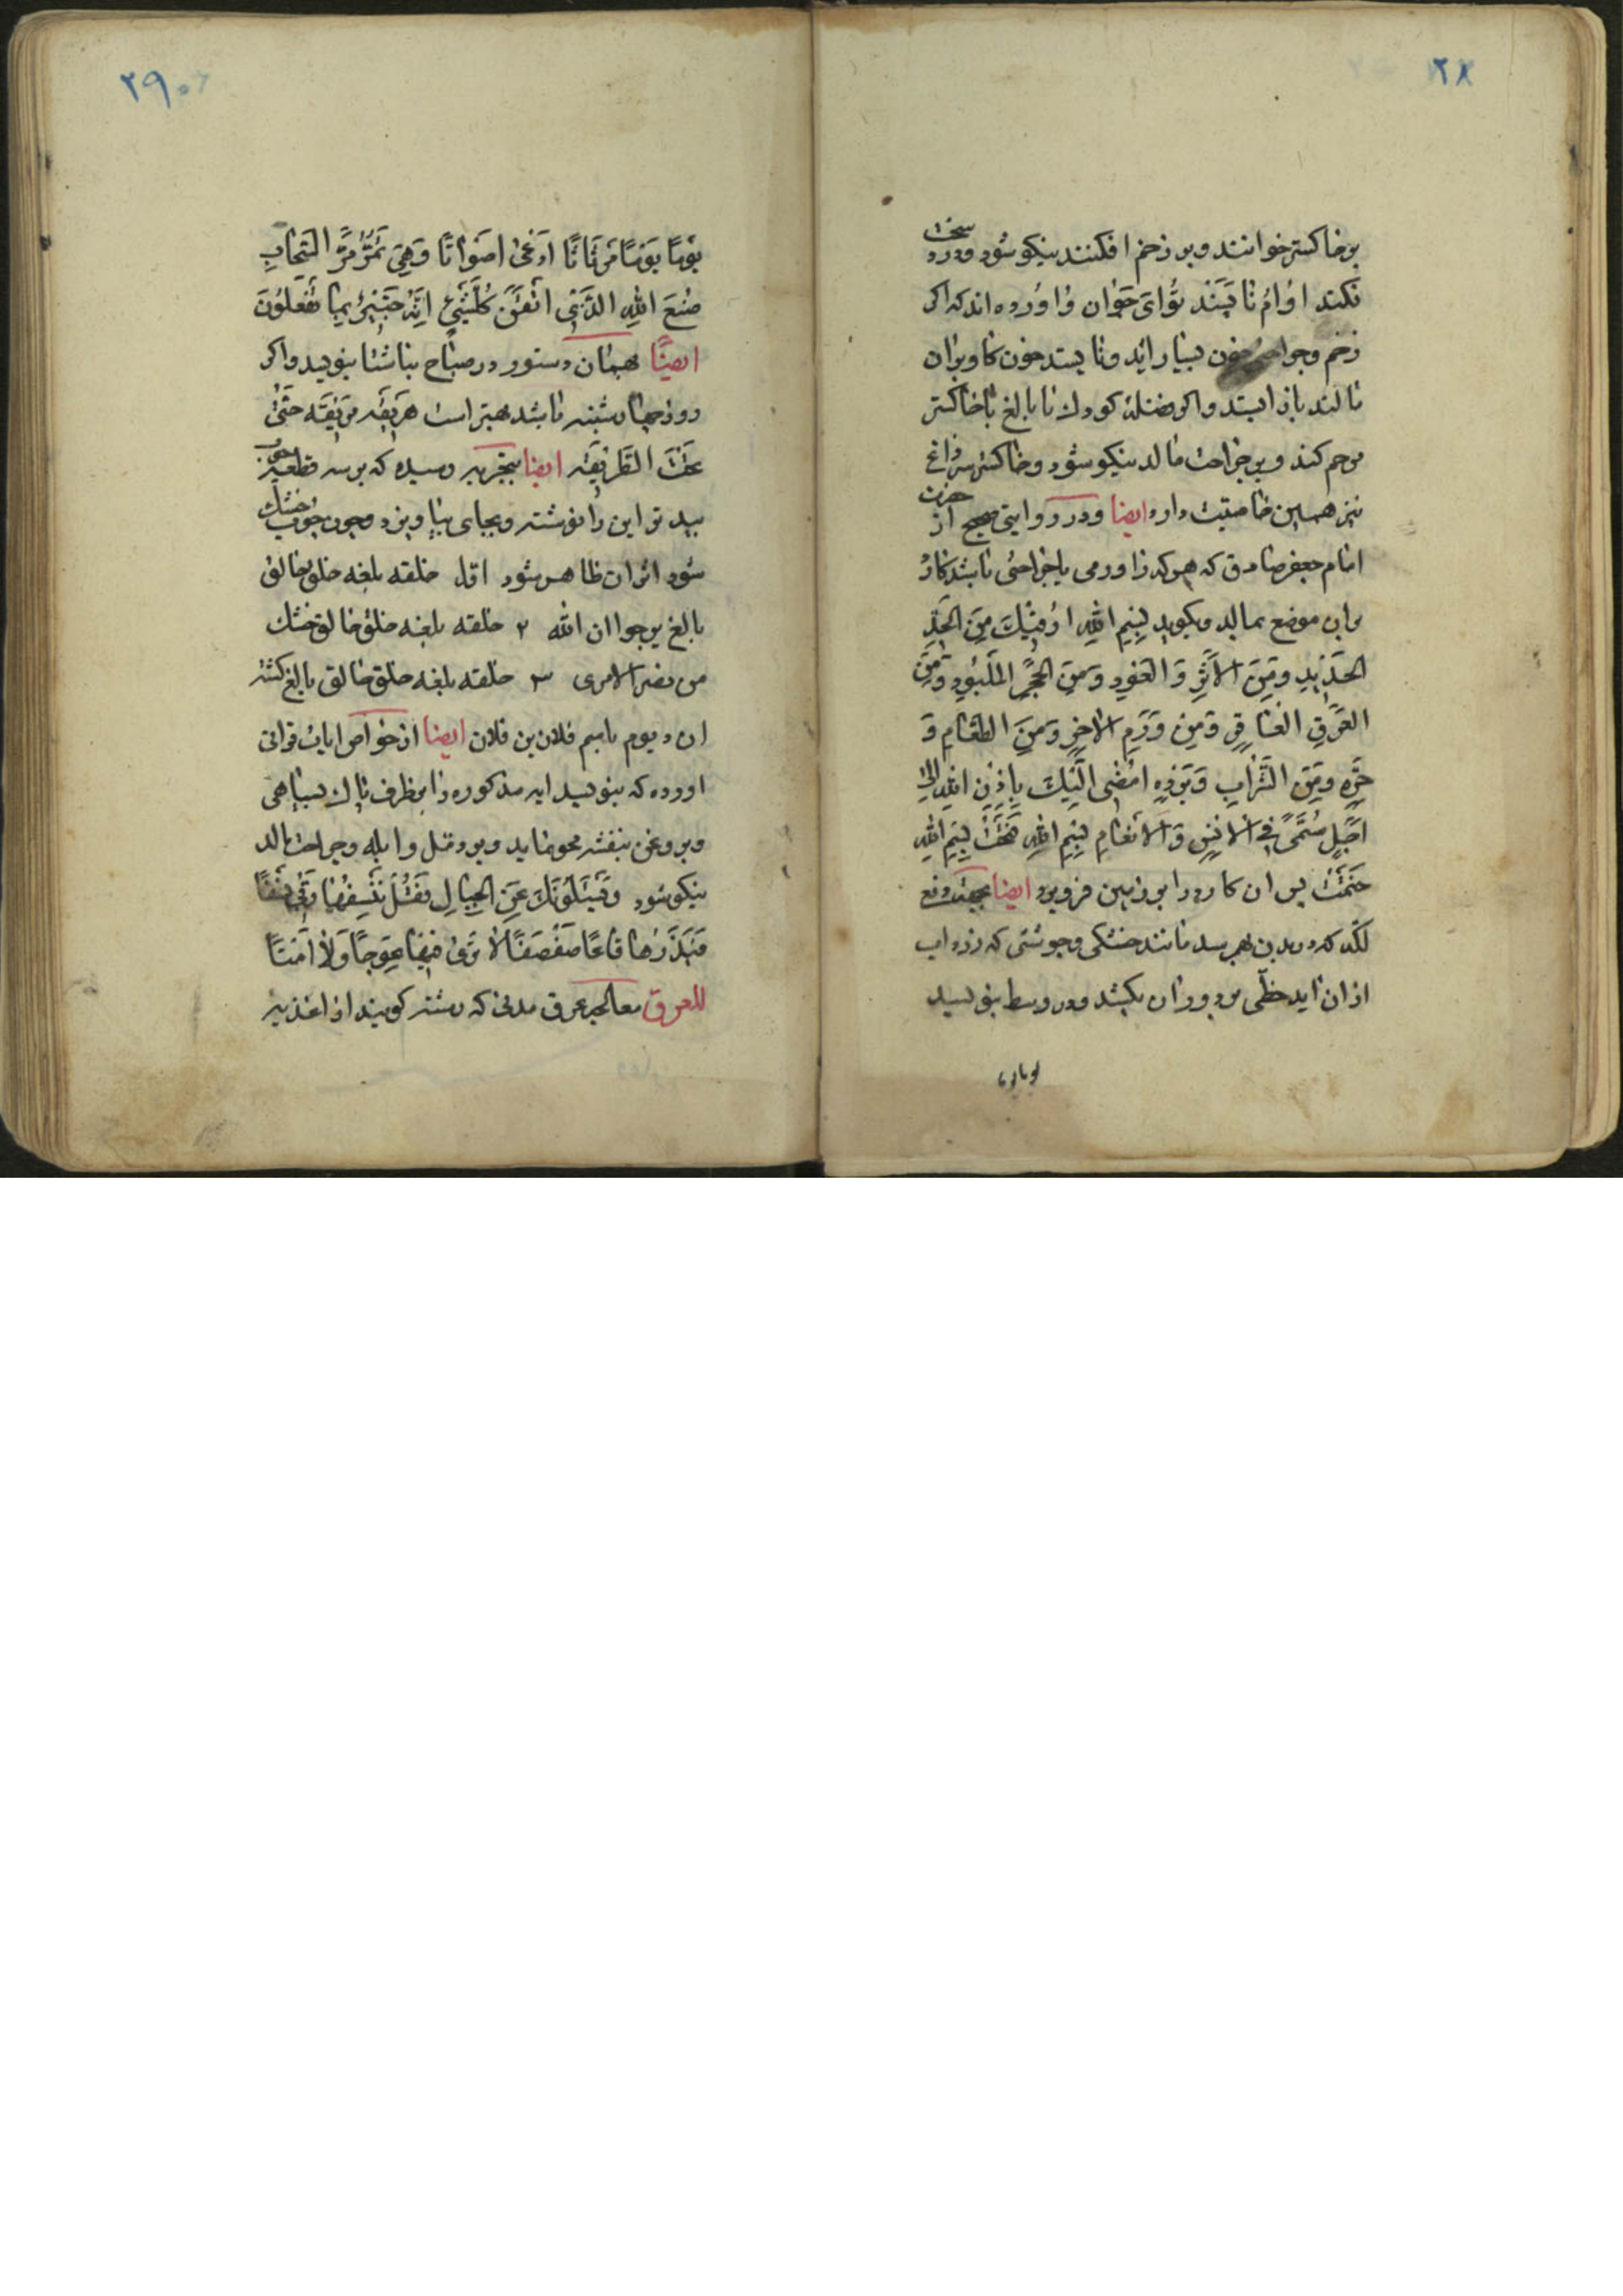 ۲۸
سخت
بر خاکستر خوانند و بر زخم افکنند نیکو شود و درد
نکند اوام نا پسند توای جوان و اورده اند که اکر
زخم و جراحت خون بسیار اید و نا یستد خون کاو بران
مالند باز ایستد و اکر فضلهٔ کودك نا بالغ با خاکستر
مرحم کند و بر جراحت مالد نیکو شود و خاکستر سر زاغ
نیز همین خاصیت دارد ایضا و در روایتی صحیح از حضرت
امام جعفر صادق که هر که را ورمی یا جراحتی باشد کارد
بران موضع بمالد و بکوید بِسْمِ اللهِ اَرْقیْكَ مِنَ الحَدِّ
الحَدیْدِ وَمِنَ الاَثَرِ وَ العَوْدِ وَ مِنَ الحَجَرِ المَلْبُودِ وَ مِنَ
العَرَقِ الفٰاقِرِ وَ مِنْ وَرَمِ الاٰخِرِ وَ مِنَ الطَّعٰامِ وَ
حَرِّهِ وَ مِنَ الشَّرٰابِ وَ بَرْدِهِ امْضِی الَیْكَ بِاِذْنِ اللهِ الیٰ
اَجَلٍ مُسَمًّی فِی الاِنْسِ وَ الاَنْعٰامِ بِسْمِ اللهِ فَتَحْتُ بِسْمِ اللهِ
خَتَمْتُ پس ان کارد را بر زمین فرو برد ایضا بجهت دفع
لکّه که در بدن بهم رسد مانند خشکی و جوششی که زرد اب
از ان اید خطّی بر دور ان بکشد و در وسط بنویسد
۲۹
یَوْمًا یَوْمًا مَرْثٰاثًا
اَصْوٰاتًا وَهِیَ تَمُرُّ مَرَّ السَّحٰابِ
صُنْعَ اللهِ الَّذِی اَتْقَنَ کُلَّشَیْئٍ اِنَّهُ خَبِیْرٌ بِمٰا تَفْعَلُوْنَ
ایضًا همان دستور در صباح ناشتا بنویسد و اکر
روز چهارشنبه باشد بهتر است
ایضا بتجربه رسیده که بر سه قطعه چوب
بید تر این را نوشته و بجای بیاویزد و چون چوب خشك
شود اثر ان ظاهر شود اوّل خلقه بلغه خلق خالق
بالغ یرجو ان الله ۲ خلقه بلغه خلق خالق خشك
من نضر الامری ۳ خلقه بلغه خلق خالق بالغ کشت
ان د یوم باسم فلان بن فلان ایضا از خواص ایات قرانی
اورده که بنویسد ایه مذکوره را بظرف پاك بسیاهی
و بروغن بنفشه محو نماید و بر دمل و ابله و جراحت مالد
نیکو شود وَیَسْئَلُوْنَكَ عَنِ الجِبٰالِ فَقُلْ یَنْسِفُهٰا رَبّی نَسْفًا
فَیَذَرُهٰا قٰاعًا صَفْصَفًا لاٰ تَریٰ فِیْهٰا عِوَجًا وَلاٰ اَمْتًا
للعرق معالجه عرق مدنی که رشته کویند از اغذیه